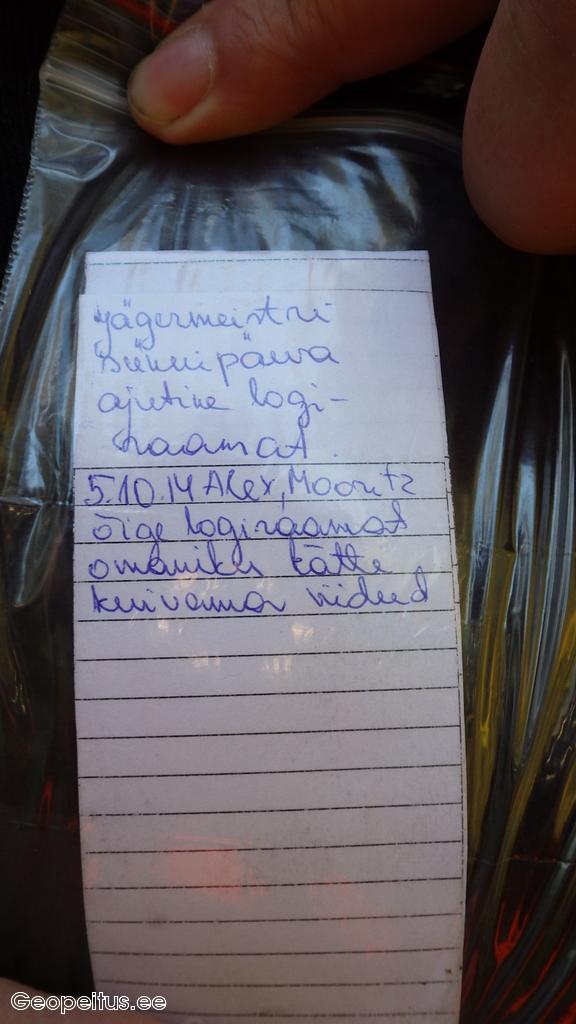 Jägermeistri
sünnipäeva
ajutine logi-
raamat.
5.10.14 Alex, Mooritz
õige logiraamat
omaniku kätte
kuivama viidud
Geopeitus.ee